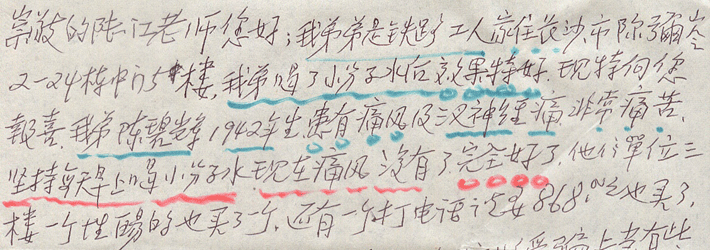 崇敬的陆江老师您好；我弟弟是铁路工人 家住长沙市
2-24栋中门5#楼，我弟喝了小分子水后效果特好，现特向您
報喜，我弟陈碧 1942年生，患有痛风及三叉神经痛，非常痛苦，
坚持每天早上喝小分子水，现在痛风没有了，完全好了，他们單位三
楼一个性 的也买了一个，还有一个打电话 868.00元也买了，